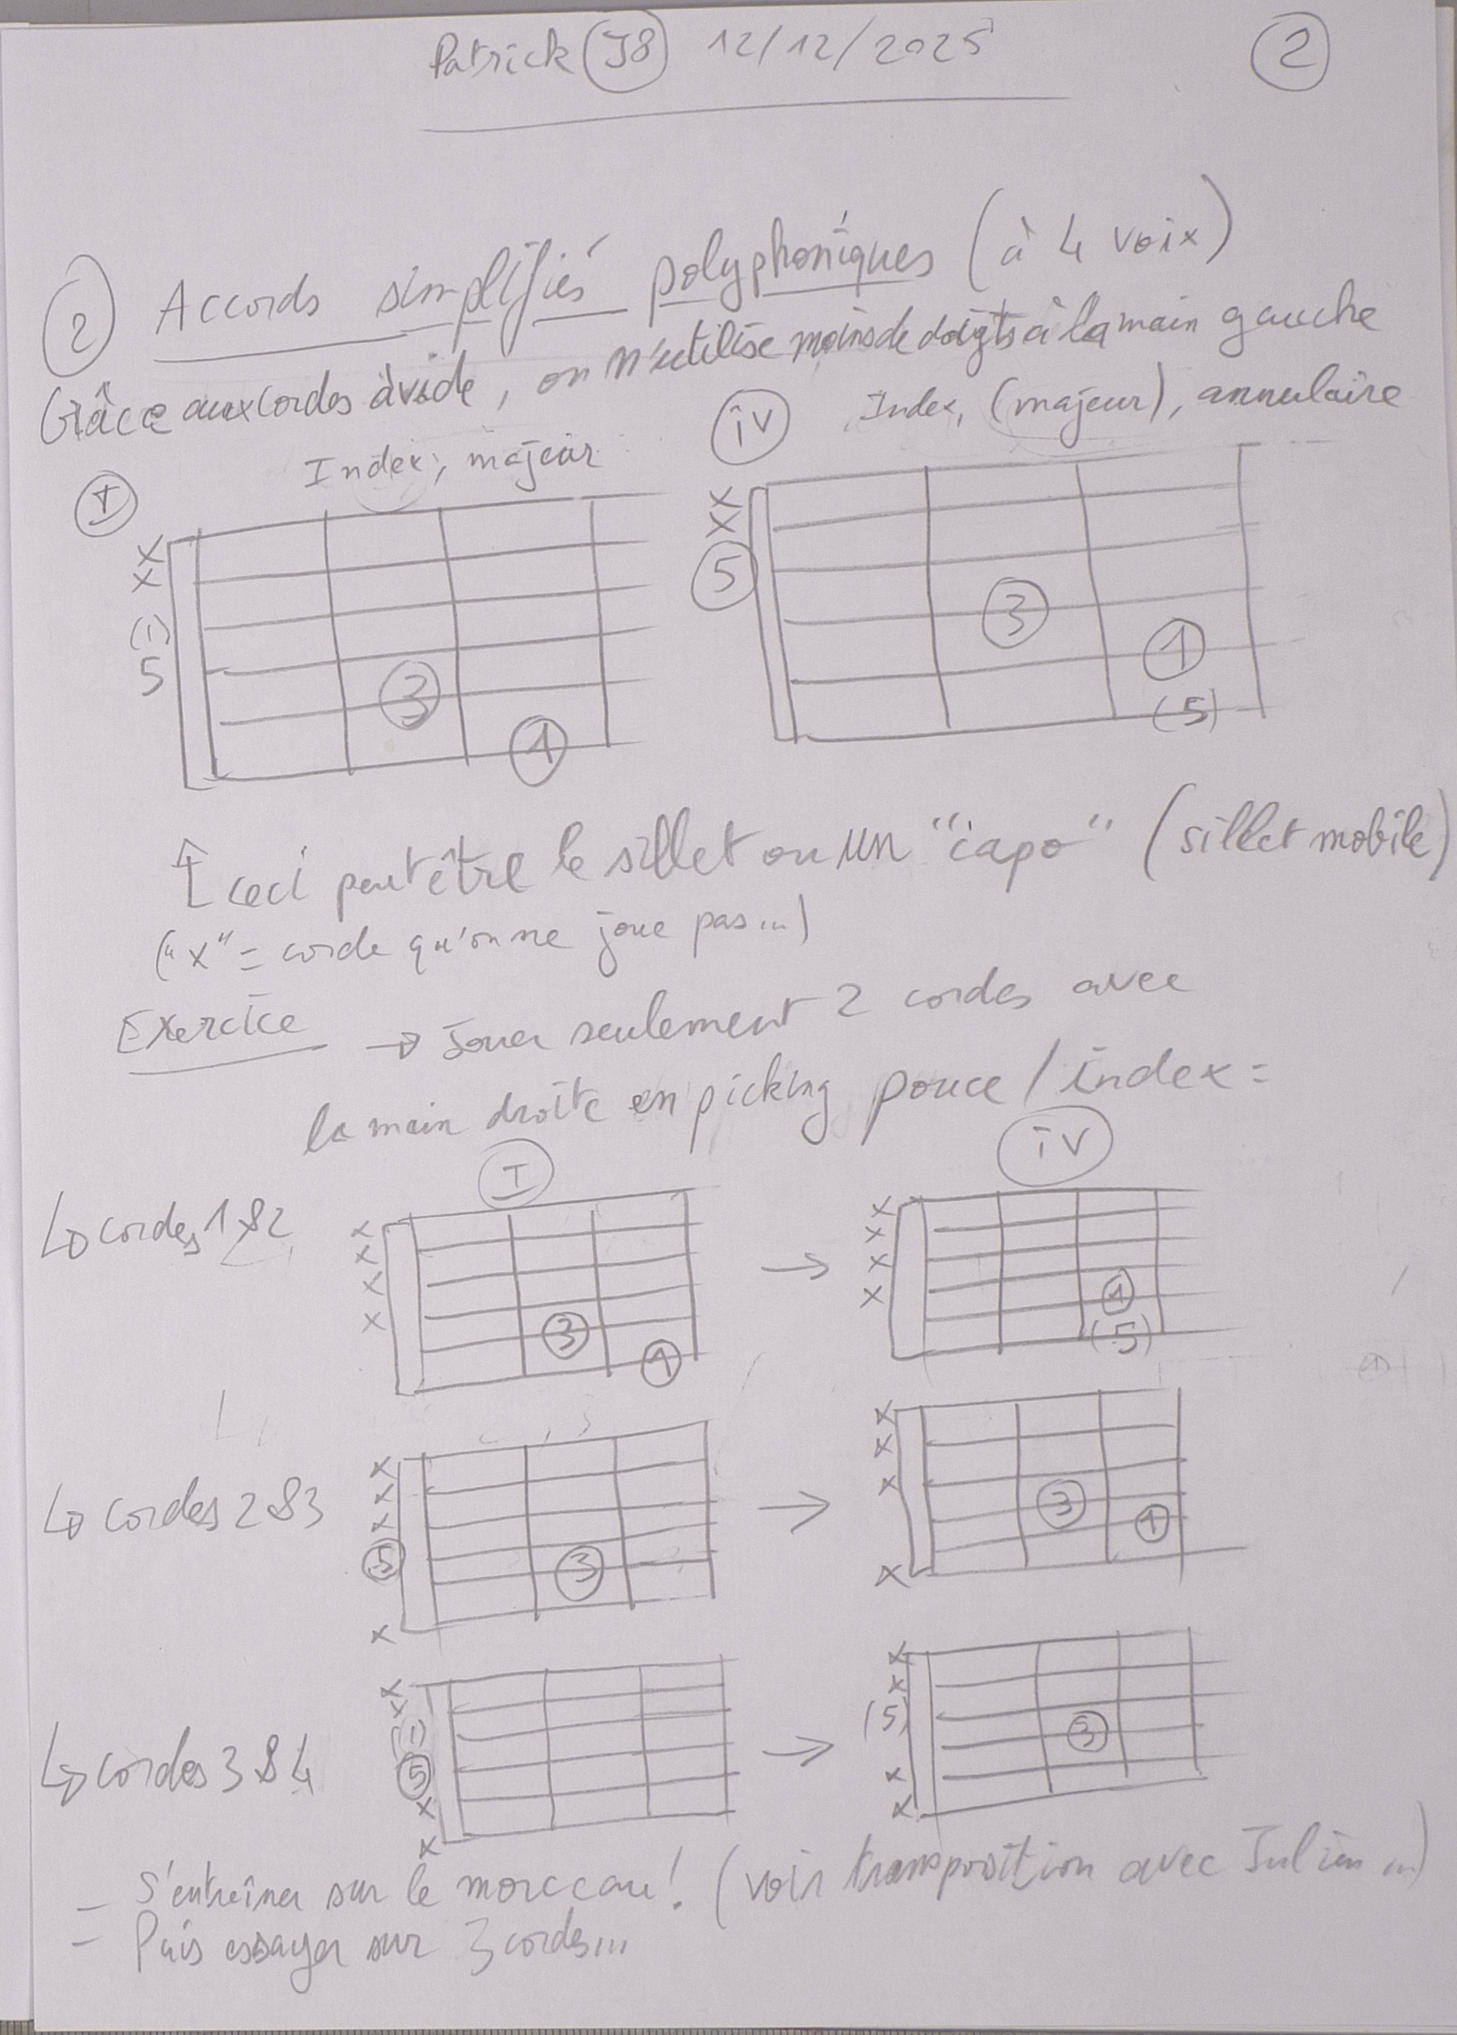 Patrick J8 12/12/2025 2
2 Accords simplifiés polyphoniques (à 4 voix)
Grâce aux cordes à vide, on n'utilise moins de doigts à la main gauche
I Index, majeur
iv Index, (majeur), annulaire
x
x
(1)
5
3
1
x
x
5
3
1
(5)
↑ ceci peut être le sillet ou un "capo" (sillet mobile)
("x" = corde qu'on ne joue pas...)
Exercice → Jouer seulement 2 cordes avec
la main droite en picking pouce / index =
I iv
↳ cordes 1 & 2
x
x
x
x
3
1
→
x
x
x
x
1
(5)
↳ cordes 2 & 3
x
x
x
5
x
3
→
x
x
x
x
3
1
↳ cordes 3 & 4
x
x
(1)
5
x
x
→
x
x
(5)
x
x
3
- S'entreîner sur le morceau! (voir transposition avec Julien...)
- Puis essayer sur 3 cordes...